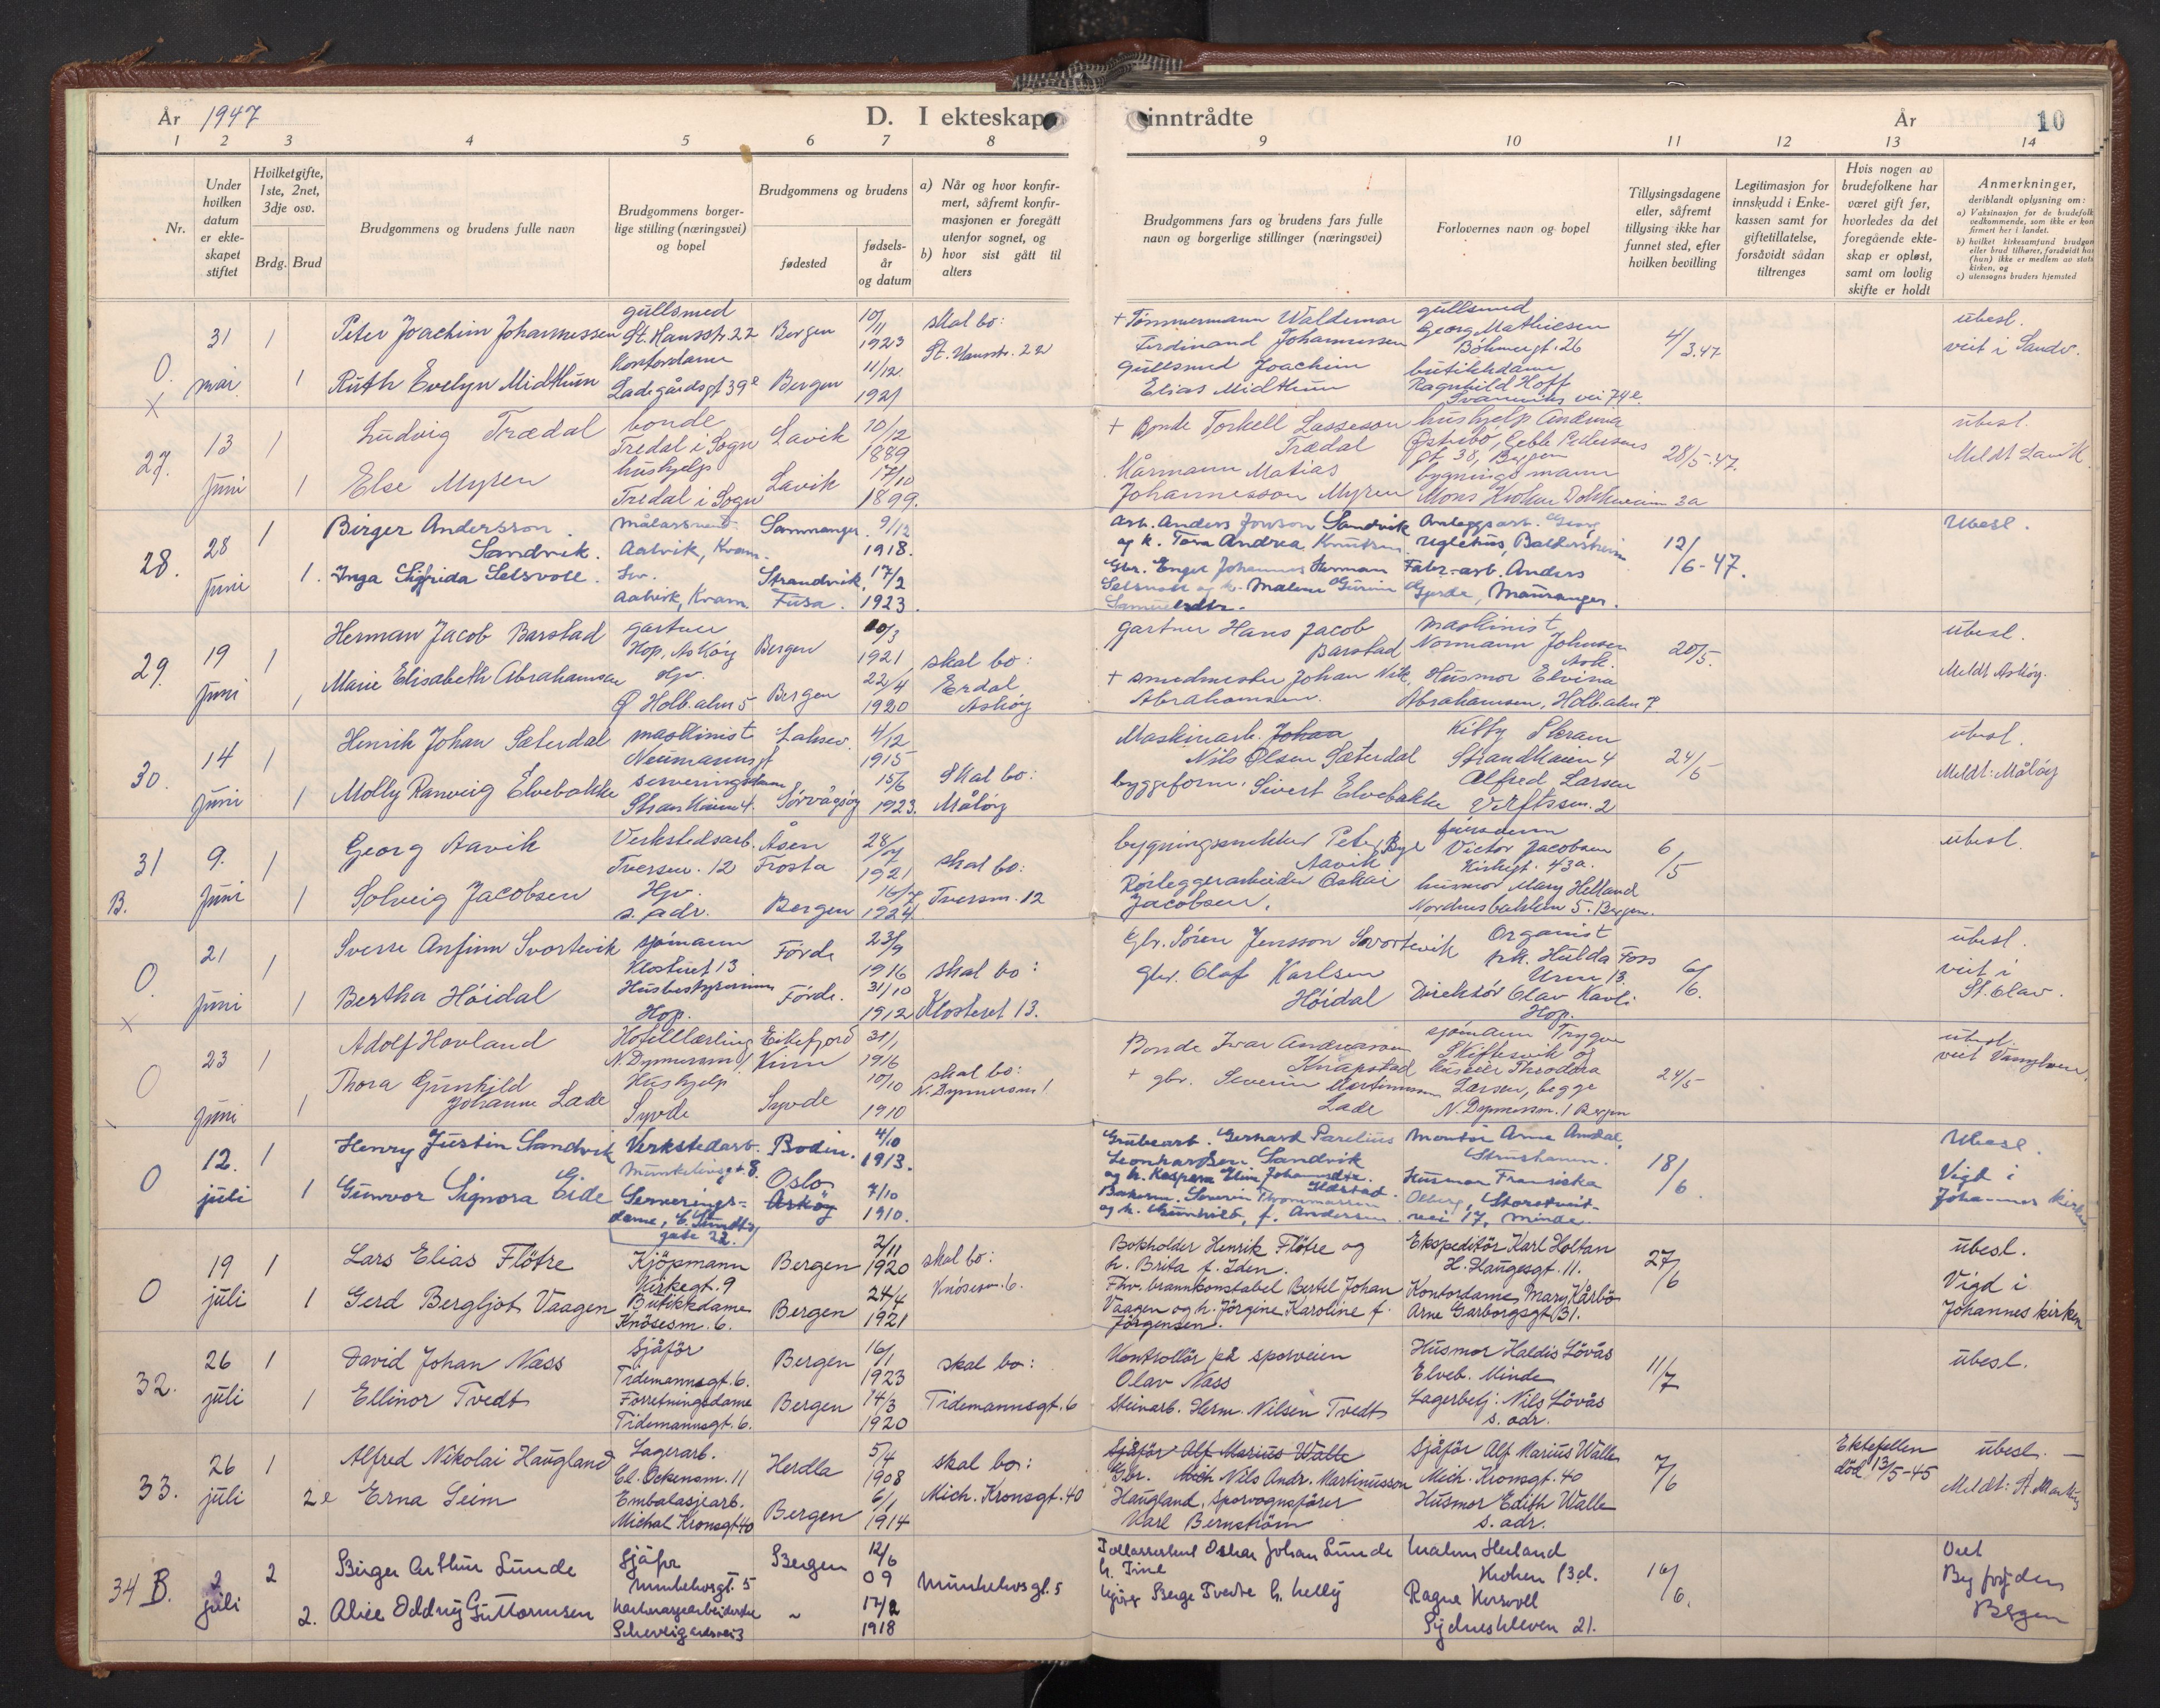 År 1947
D. I ekteskap inntrådte
År
10
1 2 3 4 5 6 7 8 9 10 11 12 13 14
Nr.
Under hvilken datum er ekteskapet stiftet
Hvilket gifte, 1ste, 2net, 3dje osv.
Brdg. Brud
Brudgommens og brudens fulle navn
Brudgommens borgerlige stilling (næringsvei) og bopel
Brudgommens og brudens
fødested
fødselsår og datum
a) Når og hvor konfirmert, såfremt konfirmasjonen er foregått utenfor sognet, og
b) hvor sist gått til alters
Brudgommens fars og brudens fars fulle navn og borgerlige stillinger (næringsvei)
Forlovernes navn og bopel
Tillysingsdagene eller, såfremt tillysing ikke har funnet sted, efter hvilken bevilling
Legitimasjon for innskudd i Enkekassen samt for giftetillatelse, forsåvidt sådan tiltrenges
Hvis nogen av brudefolkene har været gift før, hvorledes da det foregående ekteskap er opløst, samt om lovlig skifte er holdt
Anmerkninger, deriblandt oplysning om:
a) Vaksinasjon for de brudefolk vedkommende, som ikke er konfirmert her i landet.
b) hvilket kirkesamfund brudgom eller brud tilhører, forsåvidt han (hun) ikke er medlem av statskirken, og
c) utensogns bruders hjemsted
O. x 31 mai 1 Peter Joachim Johannessen gullsmed St. Hansstr. 22 Bergen 10/11 1923 skal bo: St. Hansstr. 22
1 Ruth Evelyn Midthun kontordame Ladegårdsgt 39 Bergen 11/12 1921
+ Tømmermann Waldemar Ferdinand Johannessen gullsmed Georg Mathiesen Böhmergt. 26 4/3.47 ubesl. veit i Sandv.
Gullsmed Joachim Elias Midthun butikkdame Ragnhild Hoff vei 74
27. 13 juni 1 Ludvig Trædal bonde Tredal i Sogn Lavik 10/12 1889
1 Else Myren hushjelp Tredal i Sogn Lavik 17/10 1899.
+ Bonde Torkell Lasseson Trædal hushjelp Østrebö, Geble Pedersens gt. 38, Bergen 28/5.47. ubesl. Meldt Lavik
Matias Johannesson Myren bygningsmann Mons Krohn 3a
28. 28 juni 1 Birger Andersson Sandvik. målarsvend Aalvik, Kvam. Samnanger. 9/12 1918.
1. Inga Sigfrida Selsvoll. Aalvik, Kvam Strandvik, Fusa. 17/2 1923.
Arb. Anders Jonson Sandvik og k. Andrea Knutsen. Anleggsarb. Georg 12/6-47. Ubesl.
Gbr. Engel Johannes Herman Selsvoll og k. Malene Gurine Samuelsdtr. Fabr.-arb. Anders Gjerde, Mauranger.
29. 19 juni 1 Herman Jacob Barstad gartner Hop, Askøy Bergen 10/3 1921 skal bo: Erdal Askøy
1 Marie Elisabeth Abrahamsen Hjv. Ø Holb. alm 5 Bergen 22/4 1920
gartner Hans Jacob Barstad maskinist Normann Johnsen Ask. 20/5. ubesl. Meldt Askøy.
+ smedmester Johan Nik. Abrahamsen. Husmor Elvina Abrahamsen, Holb. alm 7
30. 14 juni 1 Henrik Johan Sæterdal maskinist Neumannsgt Laksev. 4/12 1915 Skal bo: Måløy
1 Molly Ranveig Elvebakke serveringsdame Strandkaien 4. Sørvågsøy 15/6 1923.
Maskinarb. Nils Olsen Sæterdal Kitty Skram Strandkaien 4 24/5 ubesl. Meldt: Måløy
byggeform. Sivert Elvebakke Alfred Larsen Verftssm. 2
31 B. 9. juni 1 Georg Aavik Verkstedsarb. Tversm. 12 Åsen Frosta 28/7 1921 skal bo: Tversm. 12
1 Solveig Jacobsen Hjv. s. adr. Bergen 16/7 1924
bygningssnekker Peter Aavik Victor Jacobsen Kirkegt. 43a. 6/5 ubesl.
Rørleggerarbeider Oskar Jacobsen. husmor Mary Helland Nordnesbakken 5. Bergen.
O. x 21 juni 1 Sverre Anfinn Svortevik sjømann Klosteret 13 Förde 23/9 1916 skal bo: Klosteret 13.
1 Bertha Höidal Husbestyrerinne Hop. Förde. 31/10 1912
Gbr. Søren Jensson Svortevik Organist frk. Hulda Foss 13 6/6. ubesl. veit i St. Olav.
gbr. Olaf Karlsen Höidal Direktör Olav Kavli Hop.
O 23 juni 1 Adolf Hovland Hotellærling N. Dyrmersm 1. Eikefjord Kinn 31/1 1916 skal bo: N. Dyrmersm 1
1 Thora Gunhild Johanne Lade Hushjelp Syvde Syvde 10/10 1910
Bonde Ivar Andersson Knapstad sjømann Trygve Skiftesvik og Theodora Larsen, begge N. Dyrmersm. 1 Bergen 24/5 ubesl.
+ gbr. Severin Martinussen Lade
O 12. juli 1 Henry Justin Sandvik Verkstedarb. Munkelivsgt 8. Bodin. 4/10 1913.
1 Gunvor Signora G. Eide Serveringsdame, C. Sundtsgate 22. Oslo Askøy 7/10 1910.
Grubearb. Gerhard Parelius Leonhardsen Sandvik og h. Kaspara Elin Johannsdtr. Montør Arne Amdal, Strushamn. 18/6. Ubesl. Vigd i Johannes kirken
Severin og h. Gunhild, f. Andersen. Husmor Fransiska Storetveitvei 17, Minde.
O 19 juli 1 Lars Elias Flötre Kjöpmann Kirkegt. 9 Bergen 2/11 1920 skal bo: Knösesm. 6.
1 Gerd Bergljot Vaagen Butikkdame Knösesm. 6. Bergen 24/4 1921
Bokholder Henrik Flötre og h. Brita f. Iden. Ekspeditör Karl Holtan H. Haugesgt. 11. 27/6 ubesl. Vigd i Johannes kirken
Fhv. brannkonstabel Bertel Johan Vaagen og h. Jörgine Karoline f. Jörgensen. Kontordame Mary Kårbö Arne Garborgsgt 31.
32. 26 juli 1 David Johan Næss Sjåför Tidemannsgt. 6. Bergen 16/1 1923 skal bo: Tidemannsgt. 6
1 Ellinor Tvedt Forretningsdame Tidemannsgt. 6. Bergen 14/3 1920
Kontrollör på sporveien Olav Næss Husmor Haldis Lövås Elveb. Minde 11/7 ubesl.
Steinarb. Herm. Nilsen Tvedt Lagerbetj. Nils Lövås s. adr.
33. 26 juli 1 Alfred Nikolai Haugland Lagerarb. El. Ockensm. 11 Herdla 5/4 1908 skal bo: Mich. Kronsgt. 40
2 Erna Seim Embalasjearb. Michal Kronsgt 40 Bergen 6/1 1914
Sjåför Alf Marius Walle Gbr. Nils Andr. Martinusson Haugland, Sporvognsförer Karl Bernström Sjåför Alf Marius Walle Mich. Kronsgt. 40 Husmor Edith Walle s. adr. 7/6 Ektefellen död 13/5-45 ubesl. — Meldt: St. Markus
34 B. 2 juli 2 Birger Arthur Lunde Sjåfør Munkelivsgt. 5 Bergen 12/6 09 Munkelivsgt. 5
2. Alice Oddny Guttormsen 17/2 1918
Oskar Johan Lunde h. Tine Krohen 13d. 16/6. Viet Byfogden Bergen
Berge Tvedte h. Nelly Ragna Sydneskleven 21.